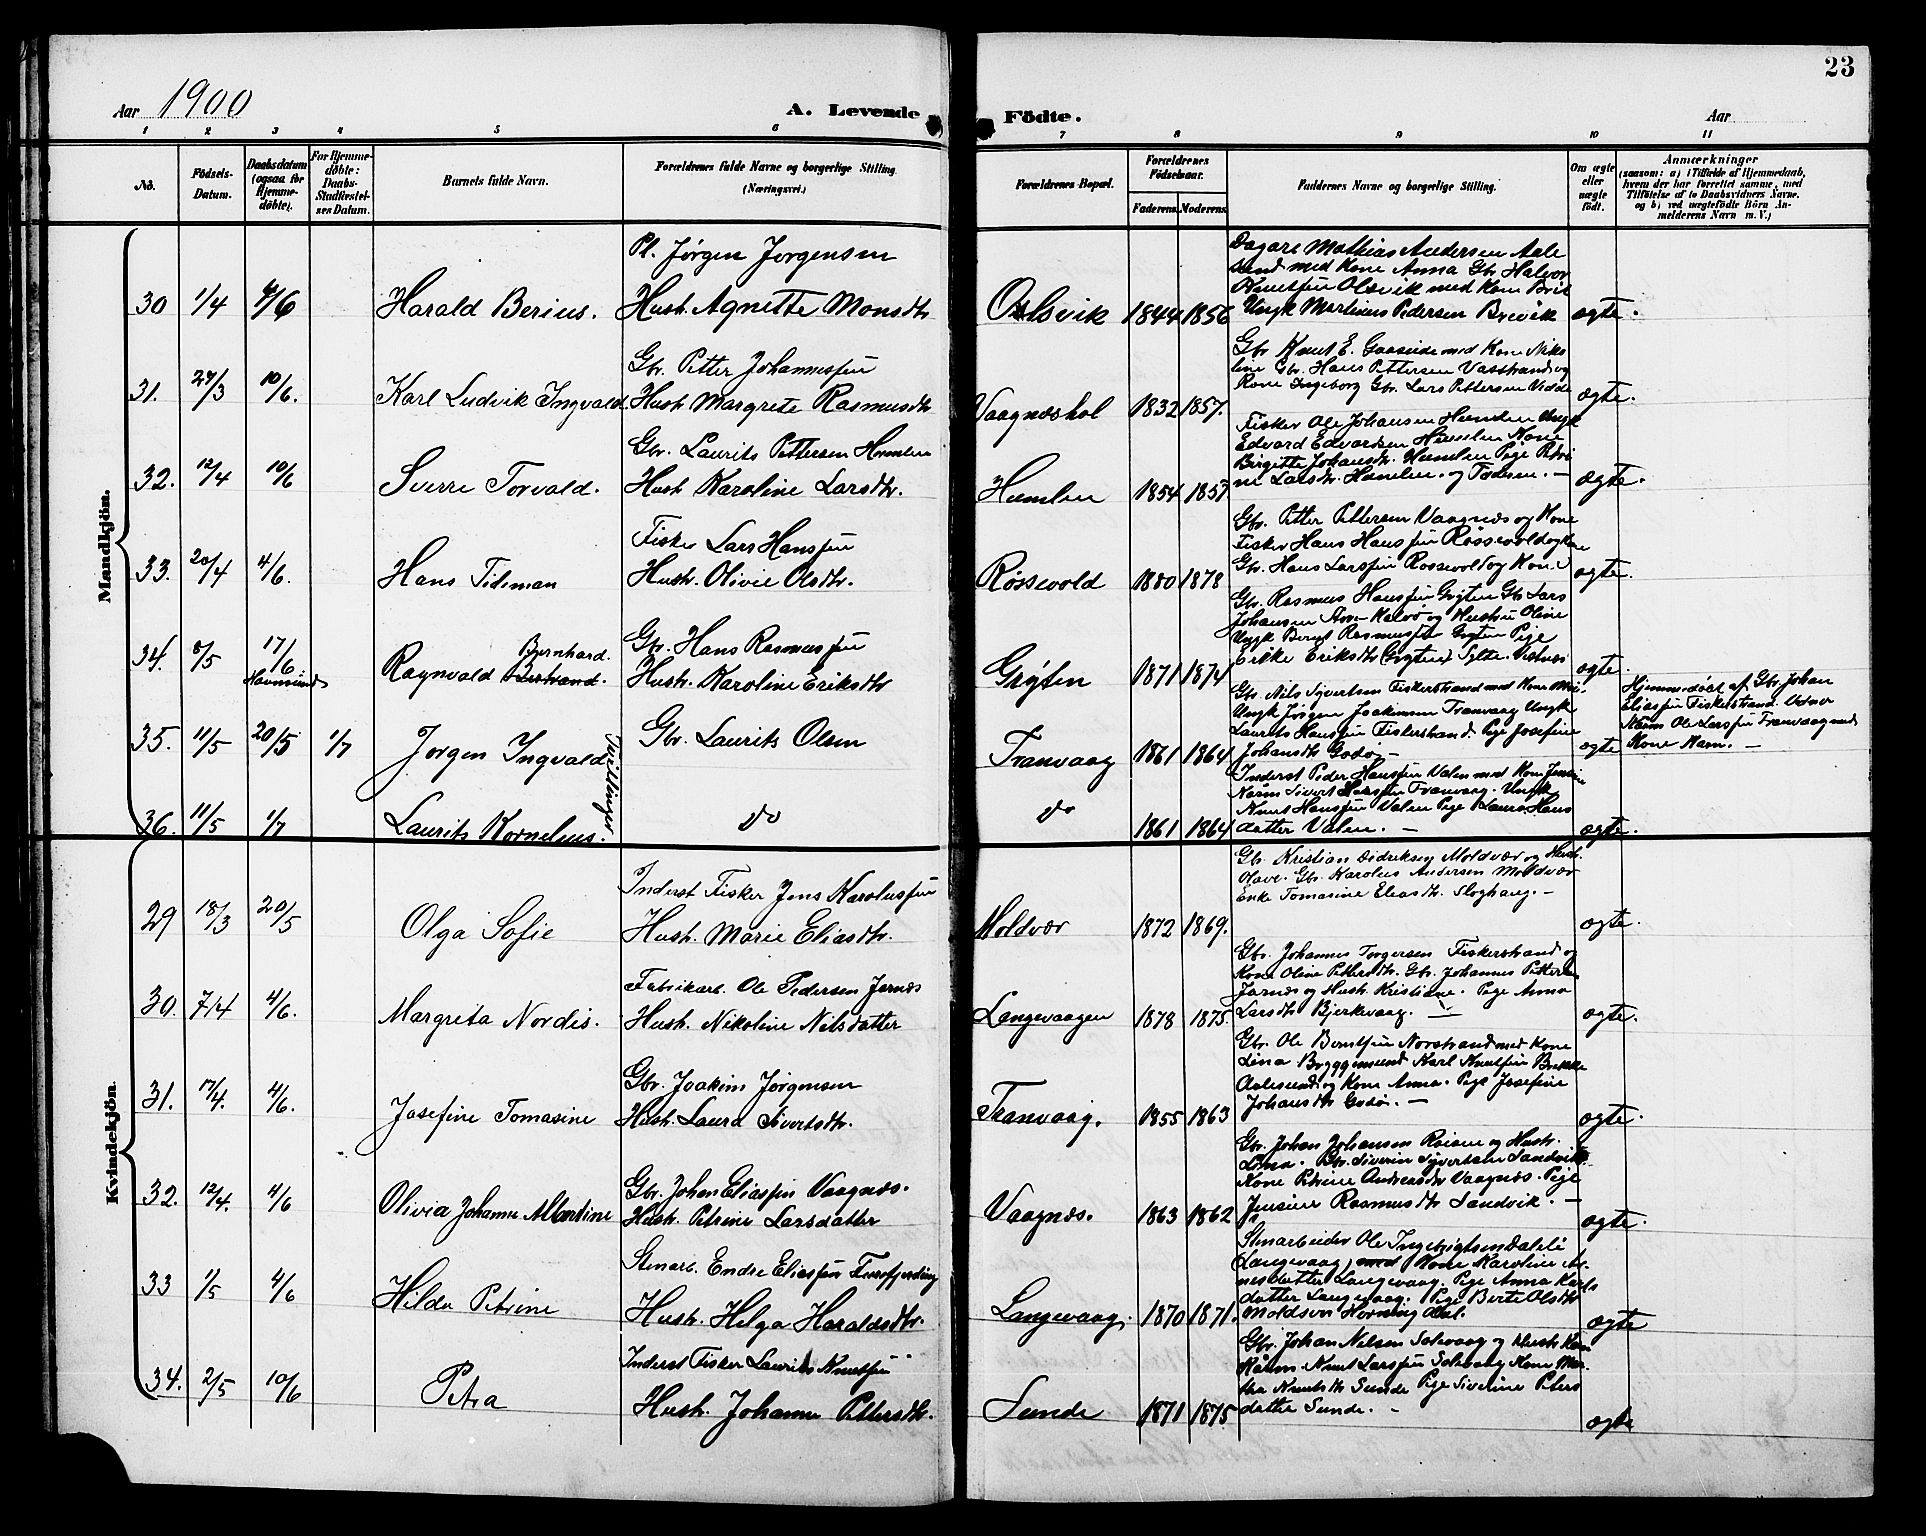 23
Aar 1900
A. Levende Födte.
Aar
1 2 3 4 5 6 7 8 9 10 11
No.
Födsels-Datum.
Daabsdatum (ogsaa for Hjemme-döbte).
For Hjemme-döbte: Daabs-Stadfæstel-ses Datum.
Barnets fulde Navn.
Forældrenes fulde Navne og borgerlige Stilling. (Næringsvei.)
Forældrenes Bopæl.
Forældrenes Födselsaar.
Faderens. Moderens.
Faddernes Navne og borgerlige Stilling.
Om ægte eller uægte födt.
Anmærkninger
(saasom: a) i Tilfælde af Hjemmedaab,
hvem der har forrettet samme, med
Tilföielse af to Daabsvidners Navne,
og b) ved uægtefödte Börn An-
melderens Navn m. V.)
Mandkjön.
30 1/4 4/6 Harald Berius.
Pl. Jørgen Jørgensen
Hust. Agnette Monsdtr
Olsvik 1844 1856
Dagarb Mathias Andersen Aale
sund med Kone Anna Gbr Halvor
Knutsen Olsvik med Kone Brit
Ungk Martinus Pedersen Brevik
ægte.
31. 24/3 10/6. Karl Ludvik Ingvald.
Gbr. Petter Johannessen
Hust Margrete Rasmusdtr
Vaagnæshol 1832 1857.
Gbr Knut E. Gaaseide med Kone Niko
line Gbr. Hans Pettersen Vasstrand og
Kone Ingeborg Gbr Lars Pettersen Vedde
ægte.
32. 12/4 10/6 Sverre Torvald.
Gbr. Laurits Pettersen Humlen
Hust Karoline Larsdtr.
Humlen 1854 1857
Fisker Ole Johansen Humlen Ungk
Edvard Edvardsen Humlen Kone
Birgitte Johansdtr. Humlen Pige Petri
ne Larsdtr. Humlen. og Faderen. —
ægte.
33. 20/4 4/6. Hans Tideman
Fisker Lars Hanssen
Hustr. Olivie Olsdtr.
Røssevold 1880 1878
Gbr. Petter Pettersen Vaagnæs og Kone
Fisker Hans Hanssen Røssevold og Kone
Gbr. Hans Larssen Røssevold og Kone.
ægte.
34. 8/5 17/6 Ragnvald Bernhard. Bertrand.
Gbr. Hans Rasmussen
Hustr. Karoline Eriksdtr
Grÿten 1871 1874
Gbr. Rasmus Hanssen Gryten Gbr Lars
Johansen Kalvø og Hustru Oline
Ungk Bernt Rasmussen Gryten Pige
Erikke Eriksdtr (Gryten) Sylte. Vestnes
ægte.
35. 11/5 20/5 1/7 Jørgen Ingvald
Tvillinger
Gbr. Laurits Olsen
Tranvaag 1861 1864
Gbr. Nils Syvertsen Fiskerstrand med Kone
Ungk Jørgen Joakimsen Tranvaag Ungk
Laurits Hanssen Fiskerstrand Pige Josefine
Johansdtr Godø. —
ægte
Hjemmedøbt af Gbr. Johan
Eliassen Fiskerstrand. Vidner
Naam Ole Larssen Tranvaag med
Kone Karn. —
36. 11/5 1/7 Laurits Kornelius.
do
do 1861 1864
Inderst Peder Hanssen Valen med Kone Jensine
Naam Sivert Larssen Tranvaag. Ungk
Knut Hanssen Valen Pige Laura Hans
datter Valen. —
ægte.
Kvindekjön.
29 18/3 20/5 Olga Sofie
Inderst Fisker Jens Karolussen
Hust. Marie Eliasdtr.
Moldvær 1872 1869.
Gbr. Kristian Didriksen Moldvær og Hustr.
Olave. Gbr. Karolus Andersen Moldvær
Enke Tomasine Eliasdtr. Sloghaug. —
ægte.
30. 7/4 4/6. Margreta Nordis.
Fabrikarb. Ole Pedersen Jarnæs
Hust. Nikoline Nilsdatter
Langevaagen 1878 1875.
Gbr. Johannes Torgersen Fiskerstrand og
Kone Oline Pettersdtr. Gbr. Johannes Pettersen
Jarnæs og Hustr. Kristiane. Pige Anna
Larsdtr Bjerkevaag. —
ægte.
31. 17/4. 4/6. Josefine Tomasine
Gbr. Joakim Jørgensen
Hust. Laura Sivertsdtr.
Tranvaag. 1855 1863
Gbr. Ole Berntsen Norstrand med Kone
Lina Bryggemand Karl Knutsen Brekke
Aalesund og Kone Anna. Pige Josefine
Johansdtr Godø. —
ægte.
32. 12/4. 4/6 Olivia Johanne Albertine
Gbr. Johan Eliassen Vaagnæs.
Hust. Petrine Larsdatter
Vaagnæs. 1863 1862
Gbr. Johan Johansen Roisne og Hustr.
Lina. Gbr. Siverin Syvertsen Sandvik
Kone Petrine Andreasdtr Vaagnæs. Pige
Jensine Rasmusdtr Sandvik. —
ægte.
33 1/5 4/6 Hilda Petrine
Stenarb. Endre Eliassen Furefjerding
Hust. Helga Haraldsdtr.
Langevaag. 1870 1871.
Stenarbeider Ole Ingebrigtsen Dalsli
Langevaag, med Kone Karoline Ar-
nesdatter Langevaag. Pige Anna Karls
datter Langevaag. Pige Berte Olsdtr
Moldsvor Hornindal.
ægte
34. 2/5 10/6 Petra
Inderst Fisker Laurits Knutsen
Hust. Johanne Pettersdtr.
Sunde 1871 1875
Gbr. Johan Nelsen Solevaag og Hustr Karn
Naam. Knut Larssen Solevaag Kone Mar-
tha Knutsdtr Sunde Pige Siverine Peters
datter Sunde. —
ægte